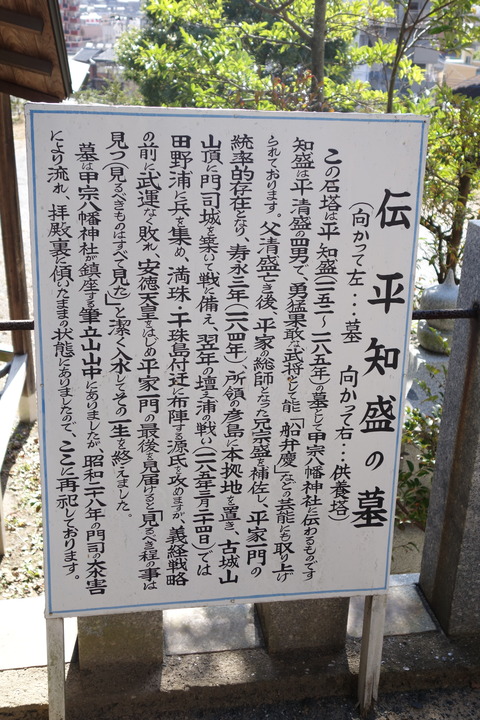 伝 平知盛の墓
(向かって左…墓 向かって右…供養塔)
この石塔は平 知盛(一一五二~一一八五年)の墓として甲宗八幡神社に伝わるものです
知盛は平 清盛の四男で、勇猛果敢な武将として能「船弁慶」などの芸能にも取り上げ
られております。父清盛亡き後、平家の総師となった兄宗盛を補佐し、平家一門の
統率的存在となり、寿永三年(一一八四年)、所領の彦島に本拠地を置き、古城山
山頂に門司城を築いて戦に備え、翌年の壇ノ浦の戦い(一一八五年三月二十四日)では
田野浦に兵を集め、満珠・干珠島付近に布陣する源氏を攻めますが、義経戦略
の前に武運なく敗れ、安徳天皇をはじめ平家一門の最後を見届けると「見るべき程の事は
見つ(見るべきものはすべて見た)」と潔く入水してその一生を終えました。
墓は甲宗八幡神社が鎮座する筆立山山中にありましたが、昭和二十八年の門司の大水害
により流れ、拝殿裏に傾いたままの状態にありましたので、ここに再祀しております。